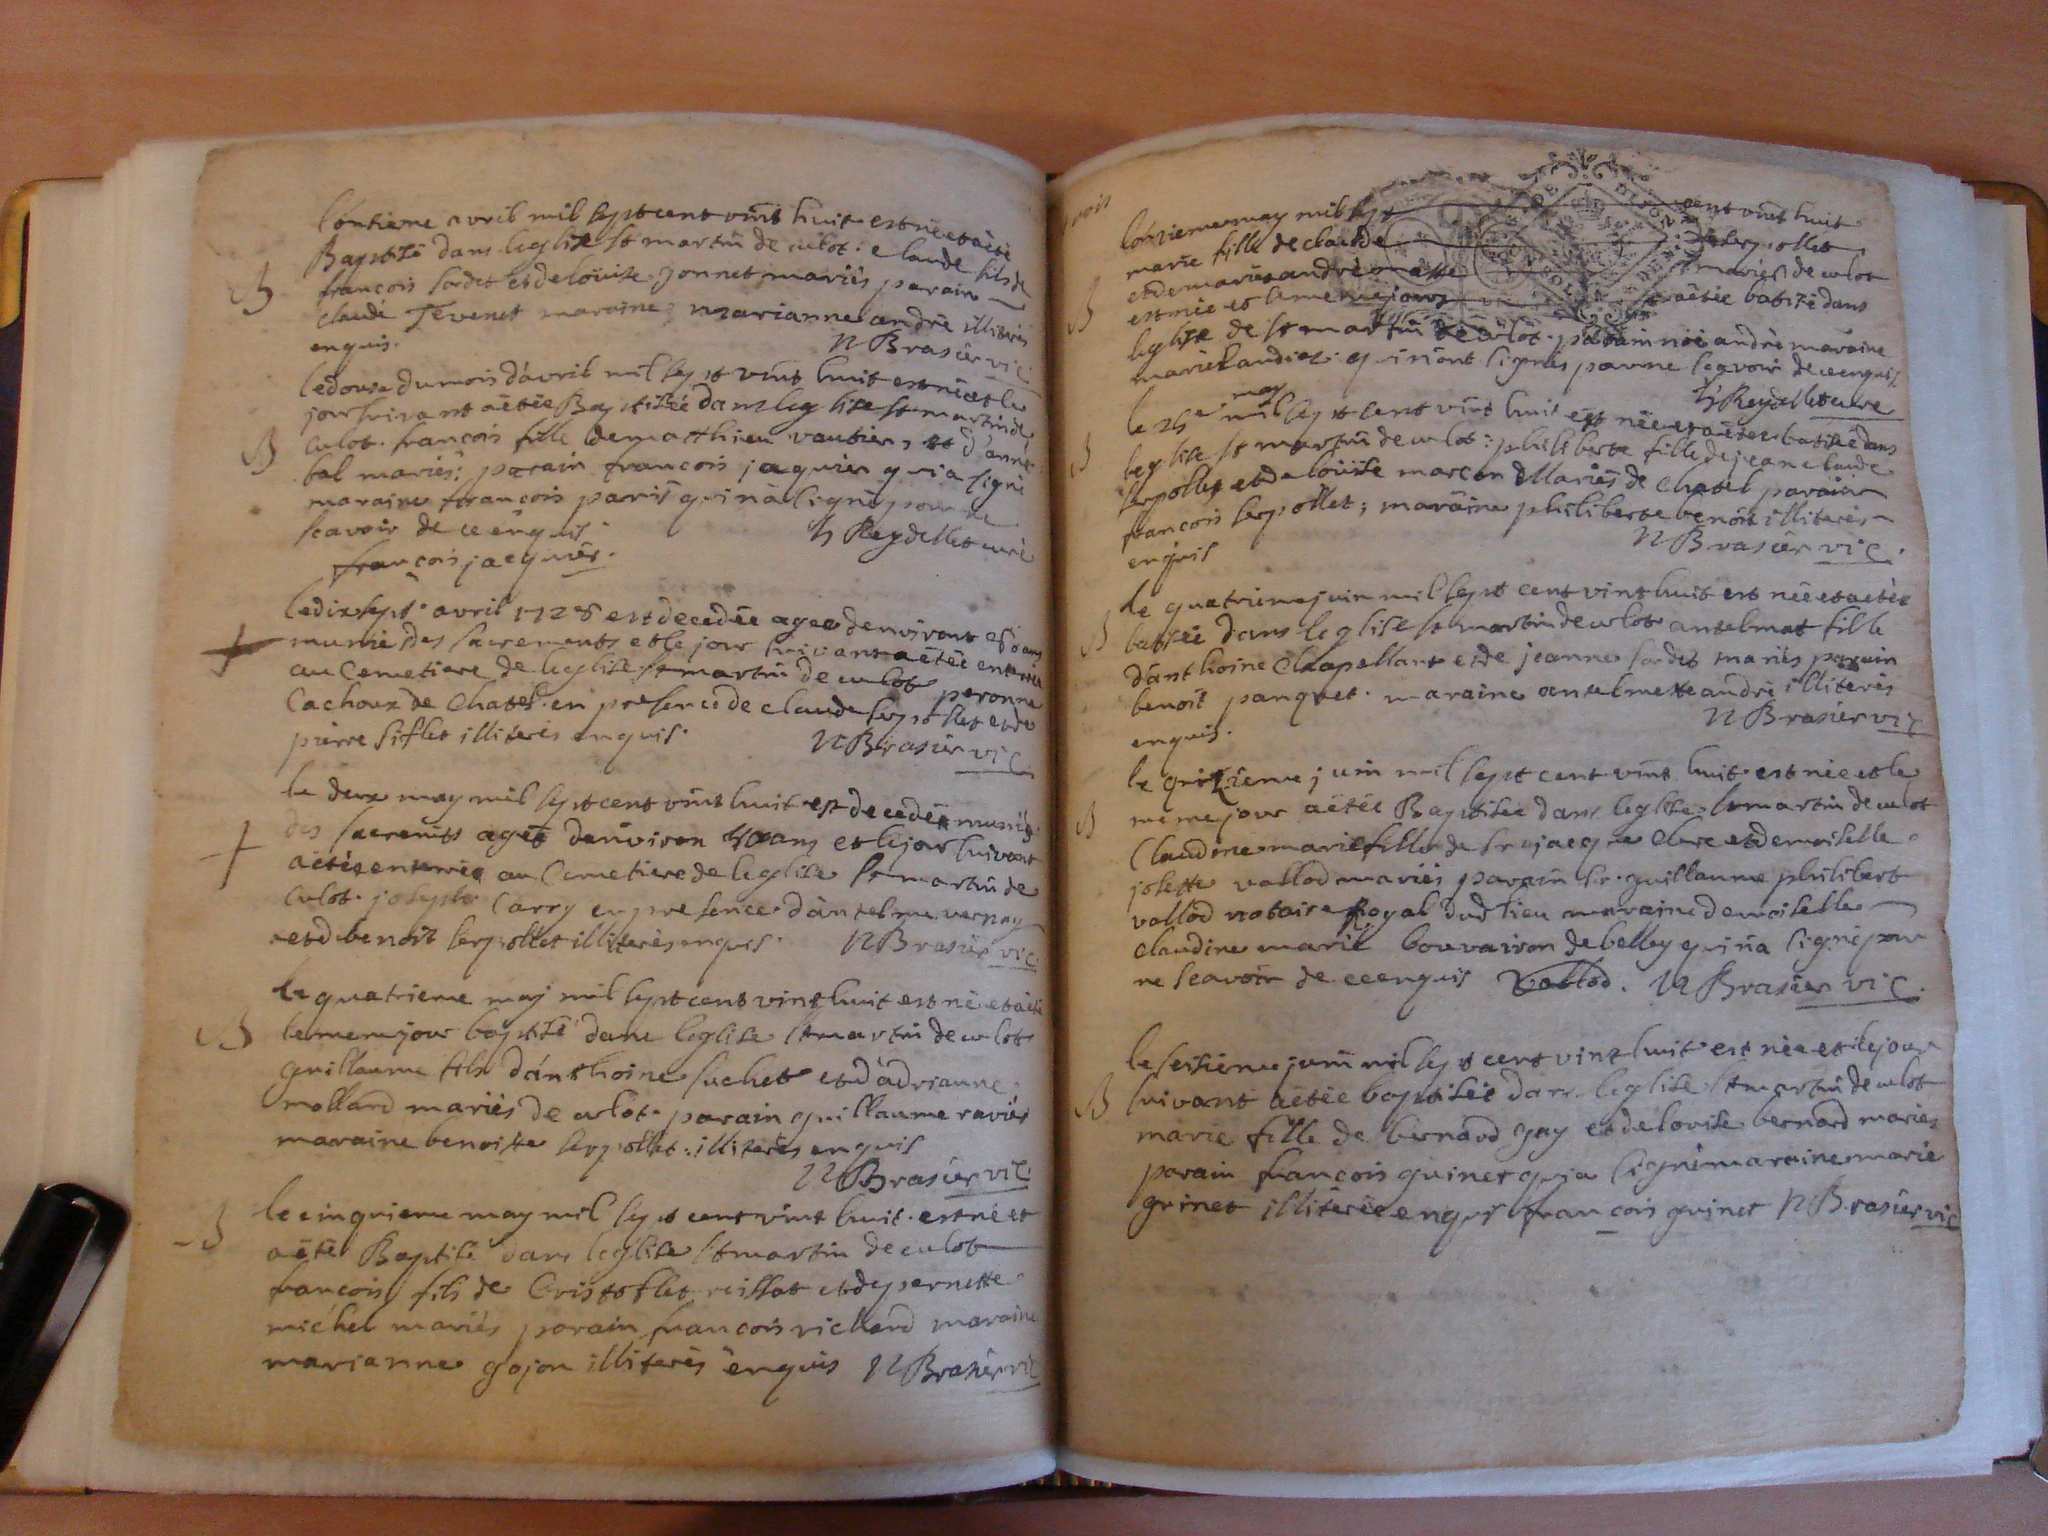 L'onzieme avril mil sept cent vint huit est né et a été
Baptizé dans leglise st martin de culot: claude fils de
francois sordet et de loüise jonnet mariés parain
claude Tevenet maraine marianne andré illiteres
enquis.
N Brasier vic
le douse du mois d'avril mil sept vint huit est née et le
jour suivant a étée Baptisée dans leglise st martin de
culot. francois fille de matthieu vautier, et d'anne
bal mariés; parain francois jaquier qui a signé
maraine francois paris qui n'a signé pour ne
scavoir de ce enquis.
h Reydellet curé
francois jacquier.
le dixsept avril 1728 est decedée agee d'environt ans
munie des sacrements et le jour suivant a étée enterrée
au Cemetiere de leglise st martin de culot peronne
Cachoux de Chatel en presence de claude serpollet et de
pierre siflet illiteres enquis.
N Brasier vic
le deux may mil sept cent vint huit est decedé muni
des sacremts agé d'environ ans et le jour suivant
a été enterré au Cemetiere de leglise st martin de
culot. joseph Carry en presence d'antelme vernay
et de benoit serpollet illiterés enquis. N Brasier vic
le quatrieme may mil sept cent vint huit est né et a été
le meme jour baptizé dans leglise st martin de culot
guillaume fils d'anthoine suchet et d'adrianne
mollard mariés de culot. parain guillaume ravier
maraine benoitte serpollet: illiterés enquis
N Brasier vic
le cinquieme may mil sept cent vint huit est né et
a été Baptisé dans leglise st martin de culot
francois fils de Cristoflet reillat et de pernette
michel mariés parain francois richard maraine
marianne gojon illiterés enquis N Brasier vic
L'onzieme may mil sept cent vint huit
marie fille de claude serpollet
et de marie andré mariés de culot
est née et le meme jour a étée batizé dans
leglise de st martin de culot. parain noé andré maraine
marie qui n'ont signés pour ne scavoir de ce enquis
h Reydellet curé
le 25e may mil sept cent vint huit est née et a étée batisée dans
leglise st martin de culot: philiberte fille de jean claude
serpollet et de loüise marcon Mariés de Chatel parain
francois serpollet; maraine philiberte benoit illiterés
enquis
N Brasier vic.
le quatrieme juin mil sept cent vint huit est née et a étée
batisée dans leglise st martin de culot antelmat fille
d'anthoine Chapellant et de jeanne sordet mariés parain
benoit panquet. maraine antelmette andré illiterés
enquis.
N Brasier vic
le qnizieme juin mil sept cent vint huit est née et le
meme jour a étée Baptisée dans leglise st martin de culot
Claudine marie fille de sr jacque Clerc et demoiselle
josette vallod mariés parain sr. guillaume philibert
vallod notaire Royal dud lieu maraine demoiselle
claudine marie bouvairon de belley qui n'a signé pour
ne scavoir de ce enquis Vallod. N Brasier vic.
le seisieme juin mil sept cent vint huit est née et le jour
suivant a étée baptisée dans leglise st martin de culot
marie fille de bernard gay et de lovise bernard mariés
parain francois guinet qui a signé maraine marie
guinet illiterée enquis francois guinet N Brasier vic